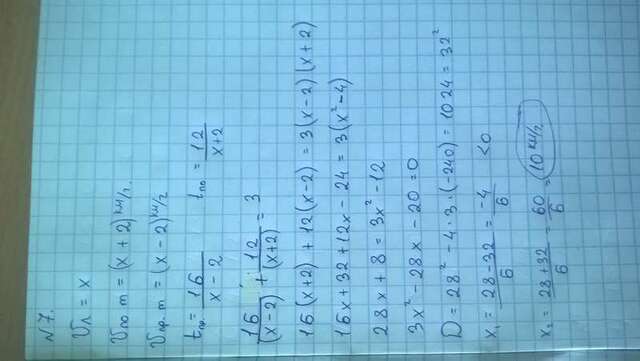 №7.
Vл = x
Vпо т = (x + 2) км/ч.
Vпр. т = (x - 2) км/ч
tпр. = 16/(x - 2) tпо = 12/(x+2)
16/(x-2) + 12/(x+2) = 3
16(x+2) + 12(x-2) = 3(x-2)(x+2)
16x + 32 + 12x - 24 = 3(x² - 4)
28x + 8 = 3x² - 12
3x² - 28x - 20 = 0
D = 28² - 4·3·(-240) = 1024 = 32²
x₁ = (28 - 32)/6 = -4/6 < 0
x₂ = (28 + 32)/6 = 60/6 = 10 км/ч